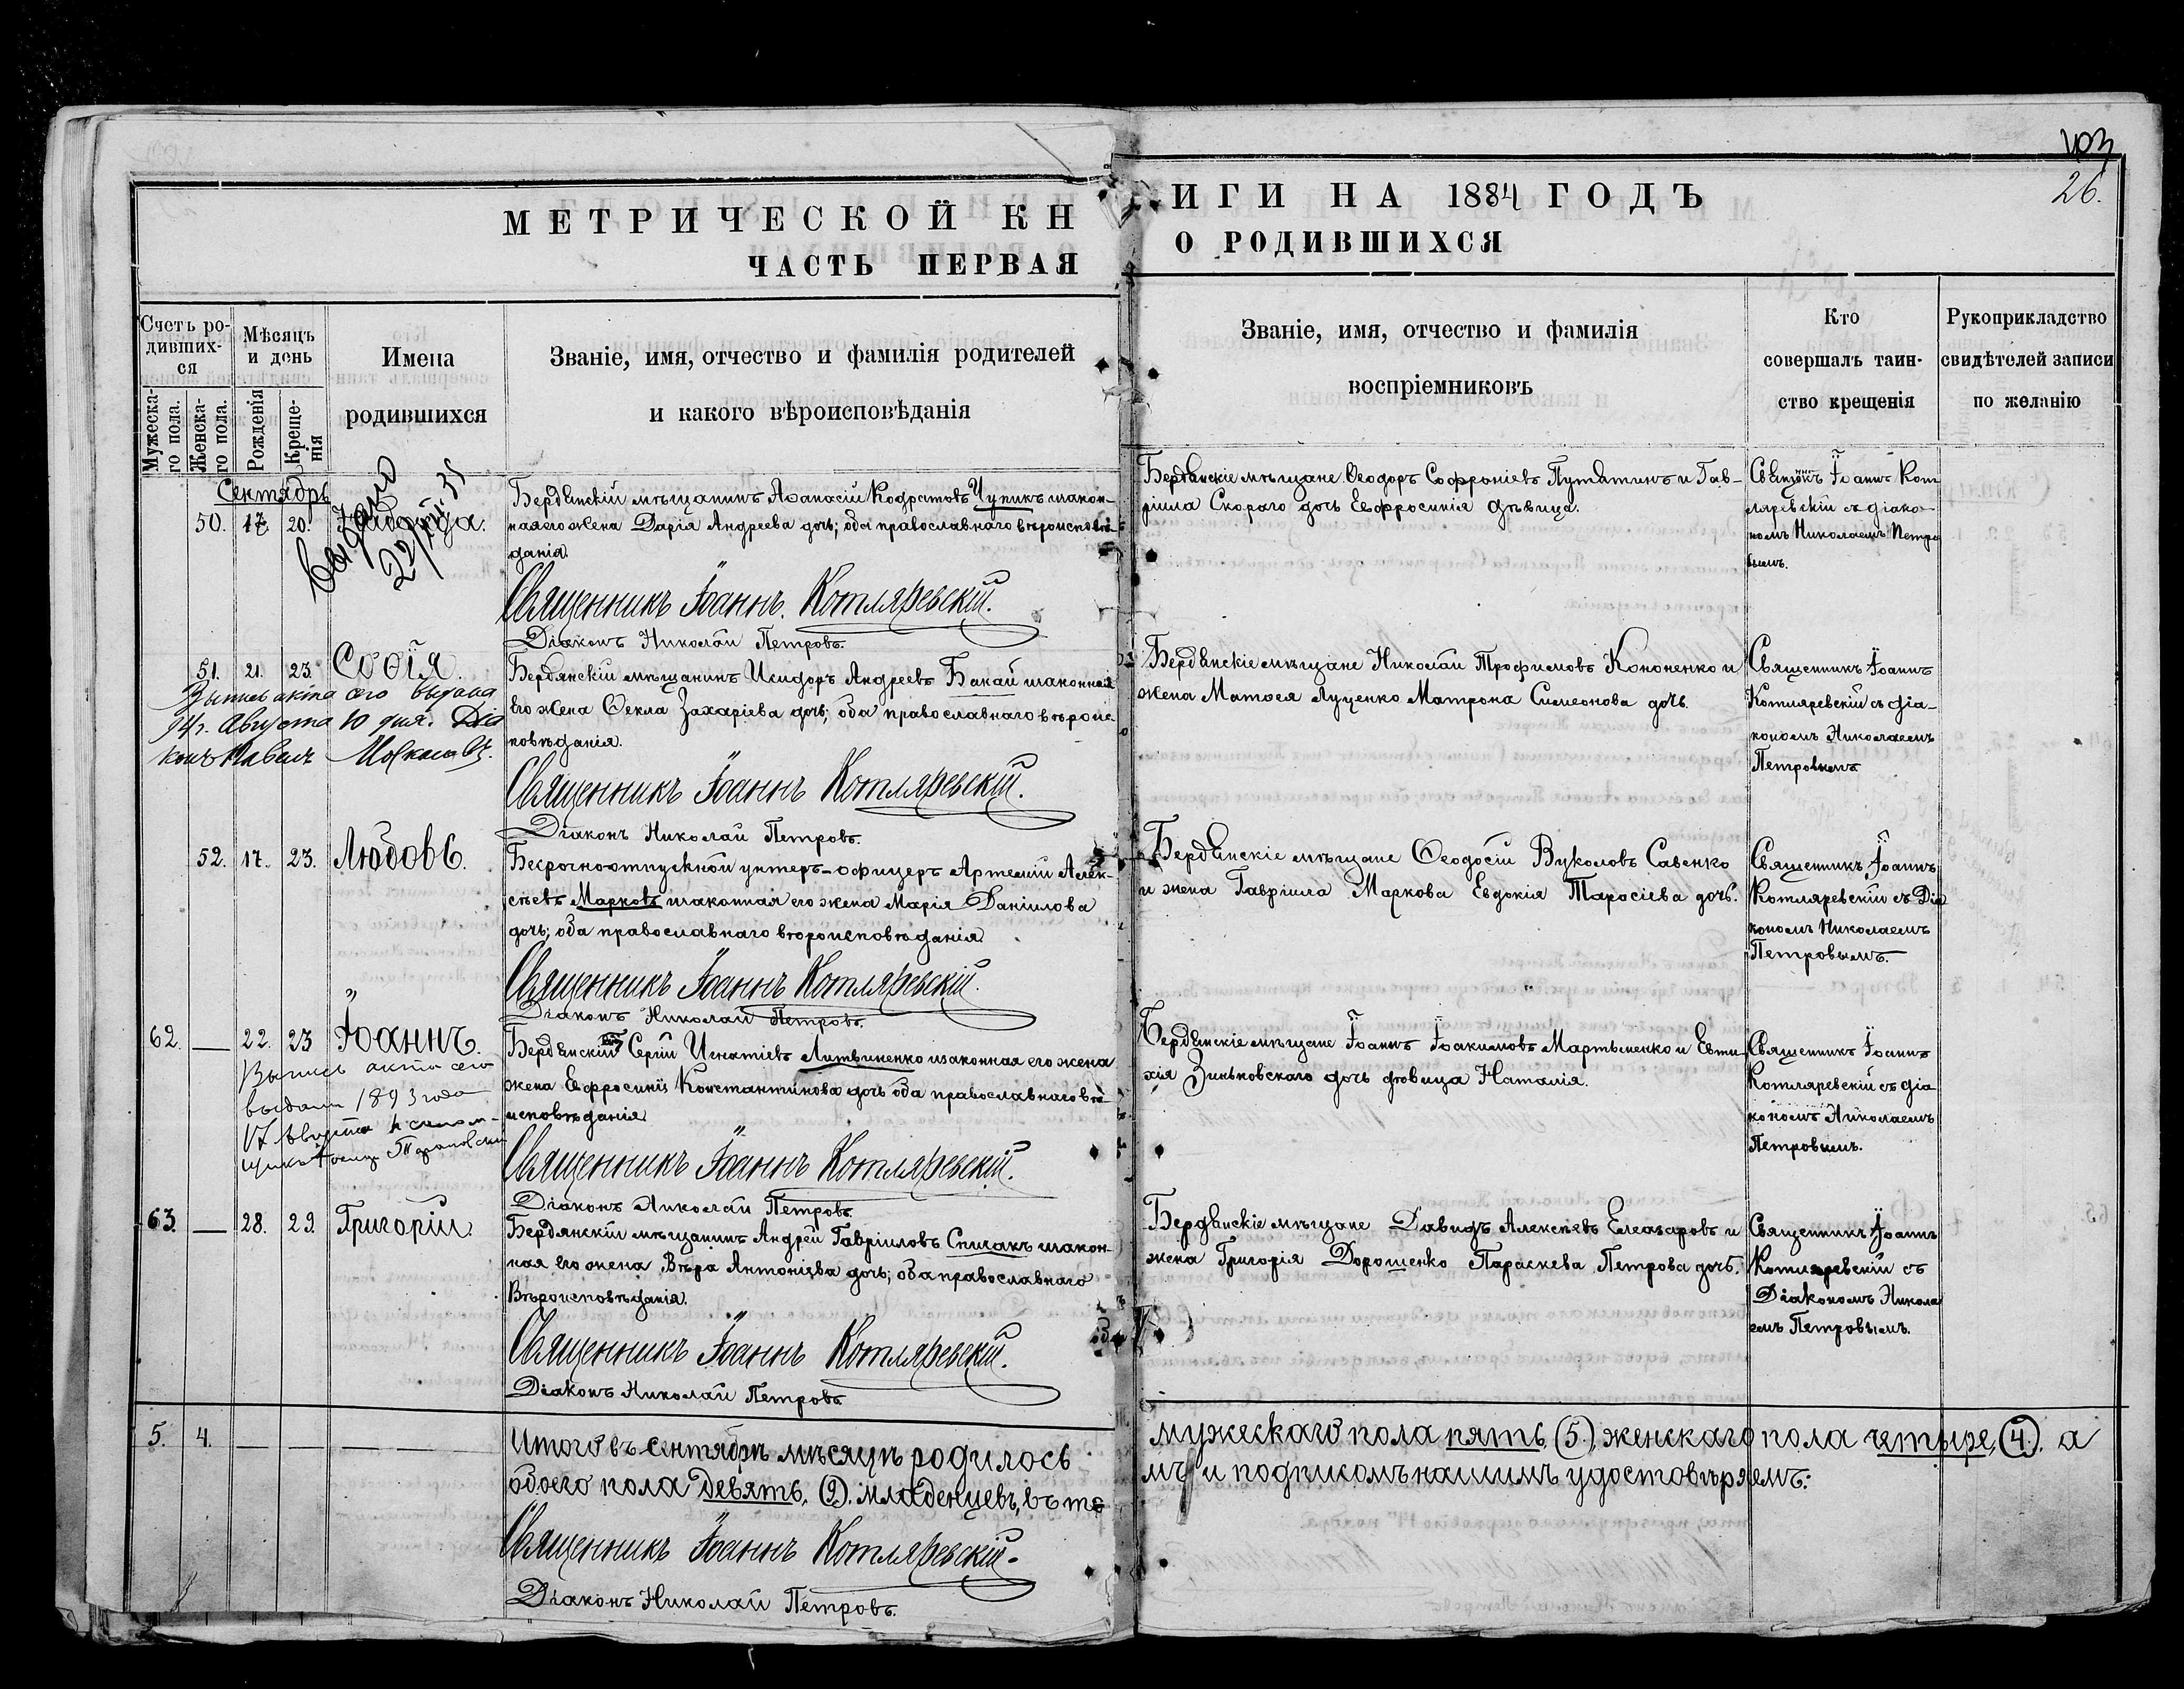 403
26.
МЕТРИЧЕСКОЙ КН
ИГИ НА 1884 ГОДЪ
ЧАСТЬ ПЕРВАЯ
О РОДИВШИХСЯ
Счетъ ро-
дивших-
ся
Мужеска-
го пола.
Женска-
го пола.
Мѣсяцъ
и день
Рожденія
Креще-
нія
Имена
родившихся
Званіе, имя, отчество и фамилія родителей
и какого вѣроисповѣданія
Званіе, имя, отчество и фамилія
воспріемниковъ
Кто
совершалъ таин-
ство крещенія
Рукоприкладство
свидѣтелей записи
по желанію
Сентябрь
50. 17. 20.
выдано
Бердянскій мѣщанинъ Аѳанасій Кодратовъ Чупикъ изакон-
ная его жена Дарія Андреева дочь; оба православнаго вѣроисповѣ-
данія.
Священникъ Іоаннъ Котляревскій.
Діаконъ Николай Петровъ.
Бердянскіе мѣщане Ѳеодоръ Софроніевъ Путятинъ и Гав-
ріила Скораго дочь Евфросинія дѣвица.
Священникъ Іоаннъ Кот
ляревскій съ діако-
номъ Николаемъ Петро
вымъ.
51. 21. 23. Софія.
Выпись акта сего выдана
94 г. Августа 10 дня. Діа
конъ Павелъ
Бердянскій мѣщанинъ Исидоръ Андреевъ Бакай изаконная
его жена Ѳекла Захаріева дочь; оба православнаго вѣроис-
повѣданія.
Священникъ Іоаннъ Котляревскій.
Діаконъ Николай Петровъ.
Бердянскіе мѣщане Николай Трофимовъ Кононенко и
жена Матѳея Луценко Матрона Симеонова дочь.
Священникъ Іоаннъ
Котляревскій съ діа-
кономъ Николаемъ
Петровымъ
52. 17. 23. Любовь.
Безсрочноотпускной унтеръ-офицеръ Артемій Алек-
сѣевъ Марковъ изаконная его жена Марія Даніилова
дочь; оба православнаго вѣроисповѣданія.
Священникъ Іоаннъ Котляревскій.
Діаконъ Николай Петровъ.
Бердянскіе мѣщане Ѳеодосій Вуколовъ Савенко
и жена Гавріила Маркова Евдокія Тарасіева дочь.
Священникъ Іоаннъ
Котляревскій съ Діа
кономъ Николаемъ
Петровымъ.
62. — 22. 23 Іоаннъ.
Выпись акта сего
выдана 1893 года
17 Августа
Бердянскій Сергій Игнатіевъ Литвиненко изаконная его жена
жена Евфросинія Константинова дочь оба православнаго вѣро-
исповѣданія
Священникъ Іоаннъ Котляревскій.
Діаконъ Николай Петровъ
Бердянскіе мѣщане Іоаннъ Іоакимовъ Мартыненко и Евти-
хія Зиньковскаго дочь дѣвица Наталія.
Священникъ Іоаннъ
Котляревскій съ діа
кономъ Николаемъ
Петровымъ.
63. — 28. 29. Григорій.
Бердянскій мѣщанинъ Андрей Гавріиловъ Спивакъ изакон-
ная его жена Вѣра Антоніева дочь; оба православнаго
Вѣроисповѣданія.
Священникъ Іоаннъ Котляревскій.
Діаконъ Николай Петровъ
Бердянскіе мѣщане Давидъ Алексѣевъ Елеазаровъ и
жена Григорія Дорошенко Параскева Петрова дочь.
Священникъ Іоаннъ
Котляревскій съ
Діакономъ Никола
емъ Петровымъ.
5. 4. — — —
Итого въ сентябрѣ мѣсяцѣ родилось
обоего пола девять, (9). младенцевъ, въ то
мужескаго пола пять, (5.), женскаго пола четыре, (4.). а
мъ и подписомъ нашимъ удостовѣряемъ:
Священникъ Іоаннъ Котляревскій.
Діаконъ Николай Петровъ.